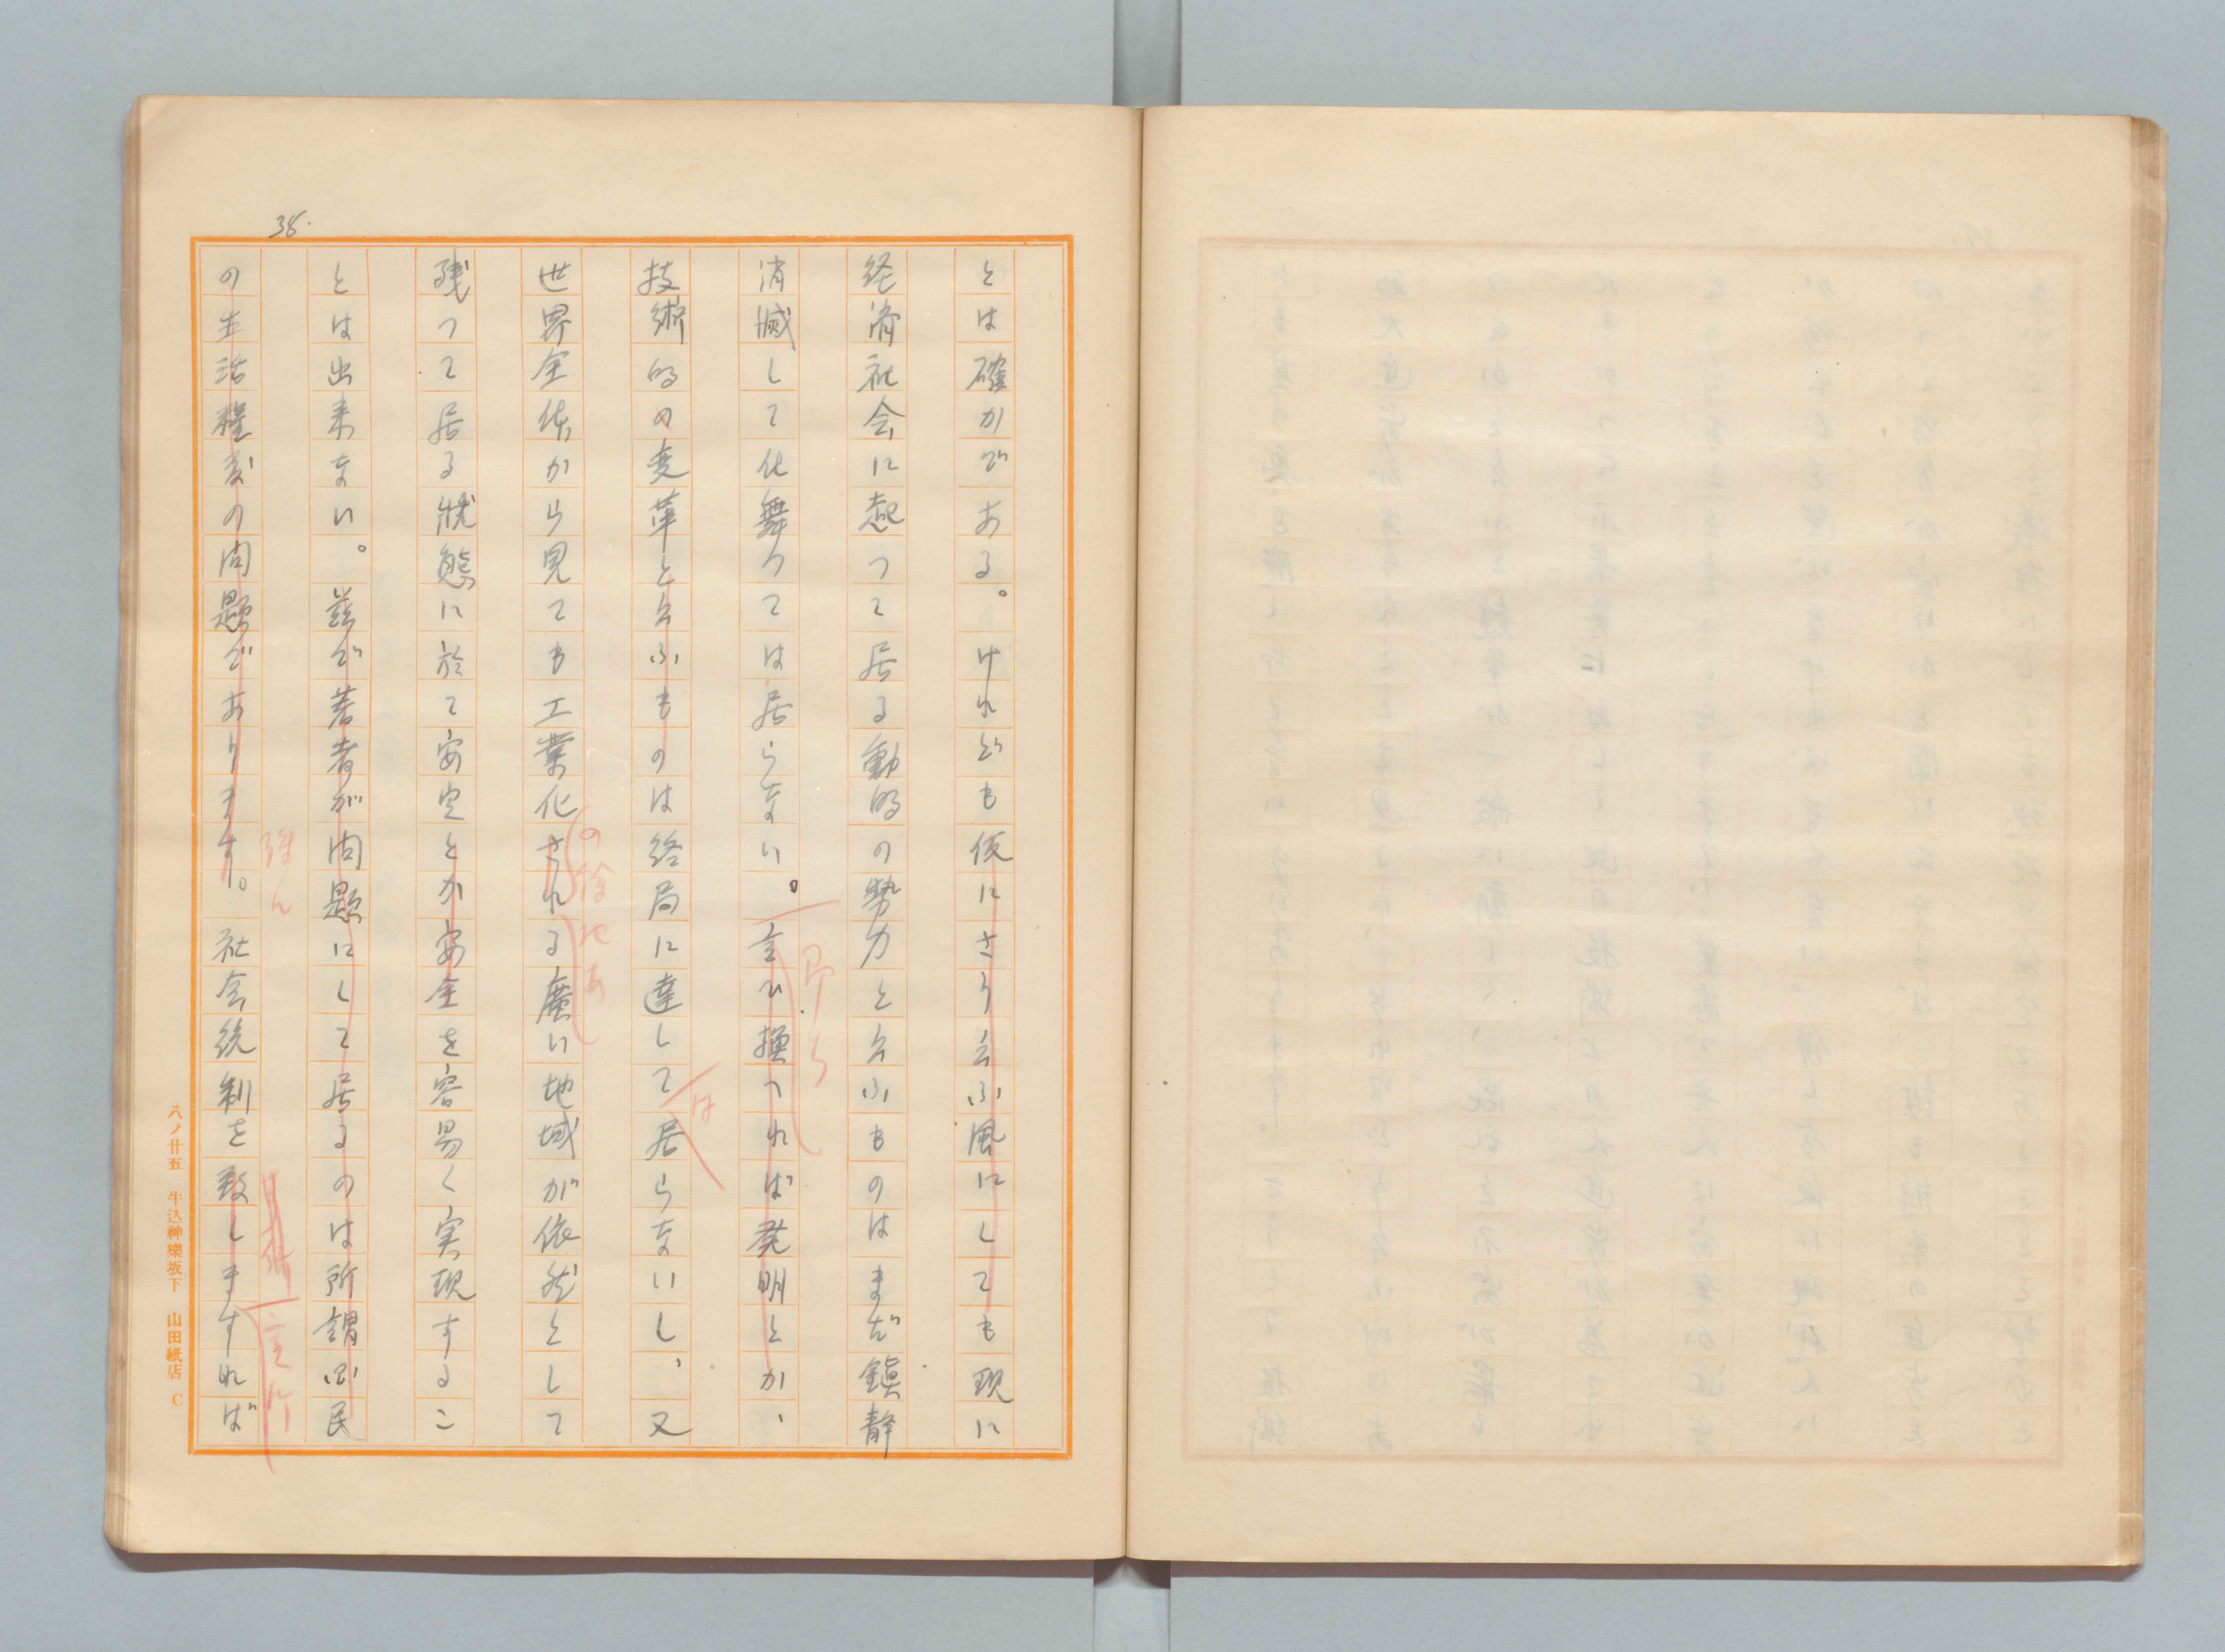 38.
とは確かである。けれども仮にさう云ふ風にしても現に
経済社会に起つて居る動的の勢力と云ふものはまだ鎮静
消滅して仕舞つては居らない。言ひ換つれば発明とか、
即ち
技術的の変革と云ふものは終局に達して居らないし、又
は
世界全体から見ても工業化される廣い地域が依然として
の余地あ
残つて居る狀態に於て安定とか安全を容易く実現するこ
とは出来ない。茲で若者が问題にして居るのは所謂ふ民
の生活程度の问題であります。社会統制を致しますれば
八ノ廿五 牛込神樂坂下 山田紙店 C